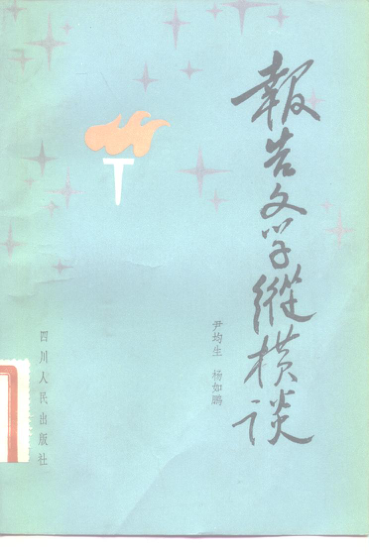 報告文学縱横谈
尹均生 杨如鹏
四川人民出版社